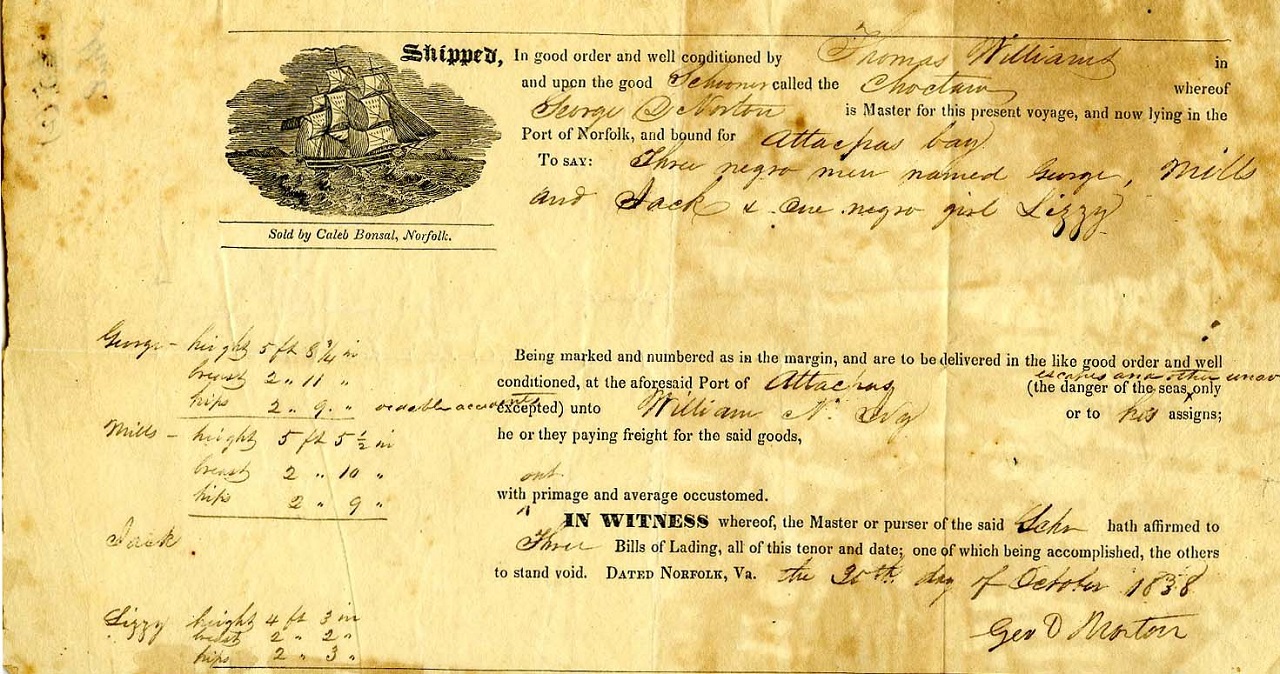 Shipped, In good order and well conditioned by Thomas Williams in
and upon the good Schooner called the Choctaw whereof
George D Morton is Master for this present voyage, and now lying in the
Port of Norfolk, and bound for Attacpas bay
To say: Three negro men named George, Mills
and Jack & One negro girl Lizzy
Sold by Caleb Bonsal, Norfolk.
George - height 5 ft 8 3/4 in
breast 2 " 11 "
hips 2 " 9 "
Mills - height 5 ft 5 1/2 in
breast 2 " 10 "
hips 2 " 9 "
Jack
Lizzy height 4 ft 3 in
breast 2 " 2 "
hips 2 " 3 "
Being marked and numbered as in the margin, and are to be delivered in the like good order and well
escapes and other unav
conditioned, at the aforesaid Port of Attacpas (the danger of the seas, only
oidable accidents excepted) unto William N. Ivy or to his assigns;
he or they paying freight for the said goods,
out
with primage and average occustomed.
IN WITNESS whereof, the Master or purser of the said Schr hath affirmed to
Three Bills of Lading, all of this tenor and date; one of which being accomplished, the others
to stand void. Dated Norfolk, Va. the 30th day of October 1838
Geo D Morton